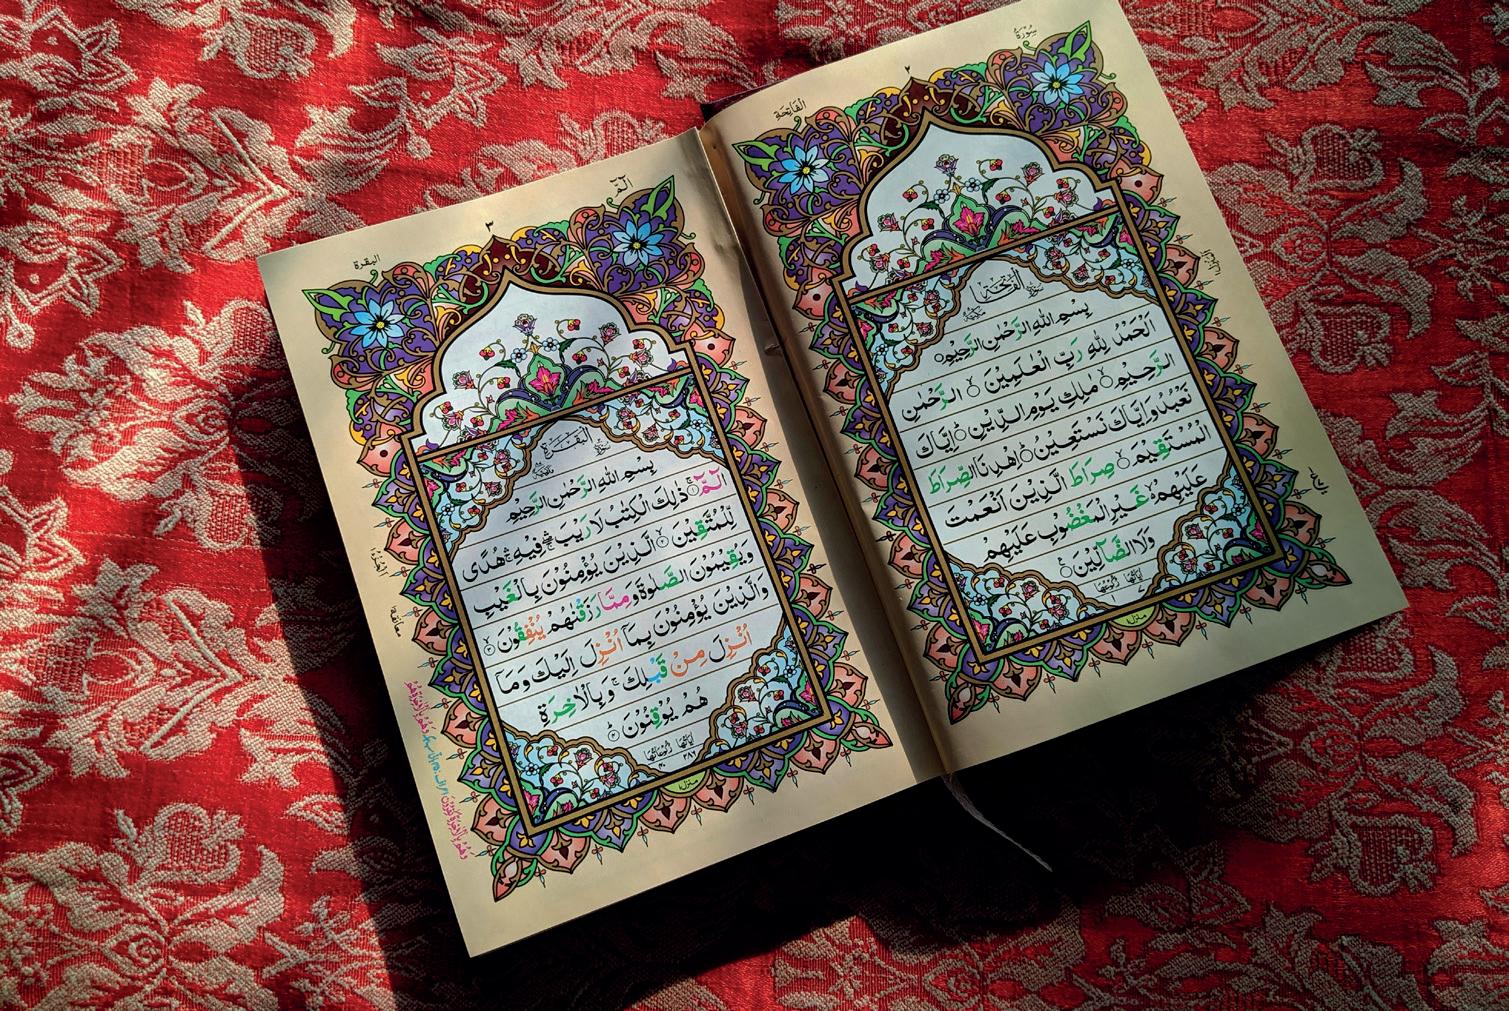 سُورَةُ
٢
الْفَاتِحَة
سُورَةُ الْفَاتِحَةِ
بِسْمِ اللّٰهِ الرَّحْمٰنِ الرَّحِيْمِ
اَلْحَمْدُ لِلّٰهِ رَبِّ الْعٰلَمِيْنَ ۙ الرَّحْمٰنِ
الرَّحِيْمِ ۙ مٰلِكِ يَوْمِ الدِّيْنِ ؕ اِيَّاكَ
نَعْبُدُ وَاِيَّاكَ نَسْتَعِيْنُ ؕ اِهْدِنَا الصِّرَاطَ
الْمُسْتَقِيْمَ ۙ صِرَاطَ الَّذِيْنَ اَنْعَمْتَ
عَلَيْهِمْ ۙ غَيْرِ الْمَغْضُوْبِ عَلَيْهِمْ
وَلَا الضَّآلِّيْنَ
اٰيَاتُهَا ٧ رُكُوْعُهَا
مَنْزِل ١
الٓمّٓ
٣
البقرة
سُورَةُ الْبَقَرَةِ
بِسْمِ اللّٰهِ الرَّحْمٰنِ الرَّحِيْمِ
الٓمّٓ ۚ ١ ذٰلِكَ الْكِتٰبُ لَا رَيْبَ ۛ فِيْهِ ۛ هُدًى
لِّلْمُتَّقِيْنَ ٢ الَّذِيْنَ يُؤْمِنُوْنَ بِالْغَيْبِ
وَيُقِيْمُوْنَ الصَّلٰوةَ وَمِمَّا رَزَقْنٰهُمْ يُنْفِقُوْنَ ٣
وَالَّذِيْنَ يُؤْمِنُوْنَ بِمَآ اُنْزِلَ اِلَيْكَ وَمَآ
اُنْزِلَ مِنْ قَبْلِكَ ۚ وَبِالْاٰخِرَةِ
هُمْ يُوْقِنُوْنَ ٤
اٰيَاتُهَا ٢٨٦ رُكُوْعَاتُهَا ٤٠
مَنْزِل ١